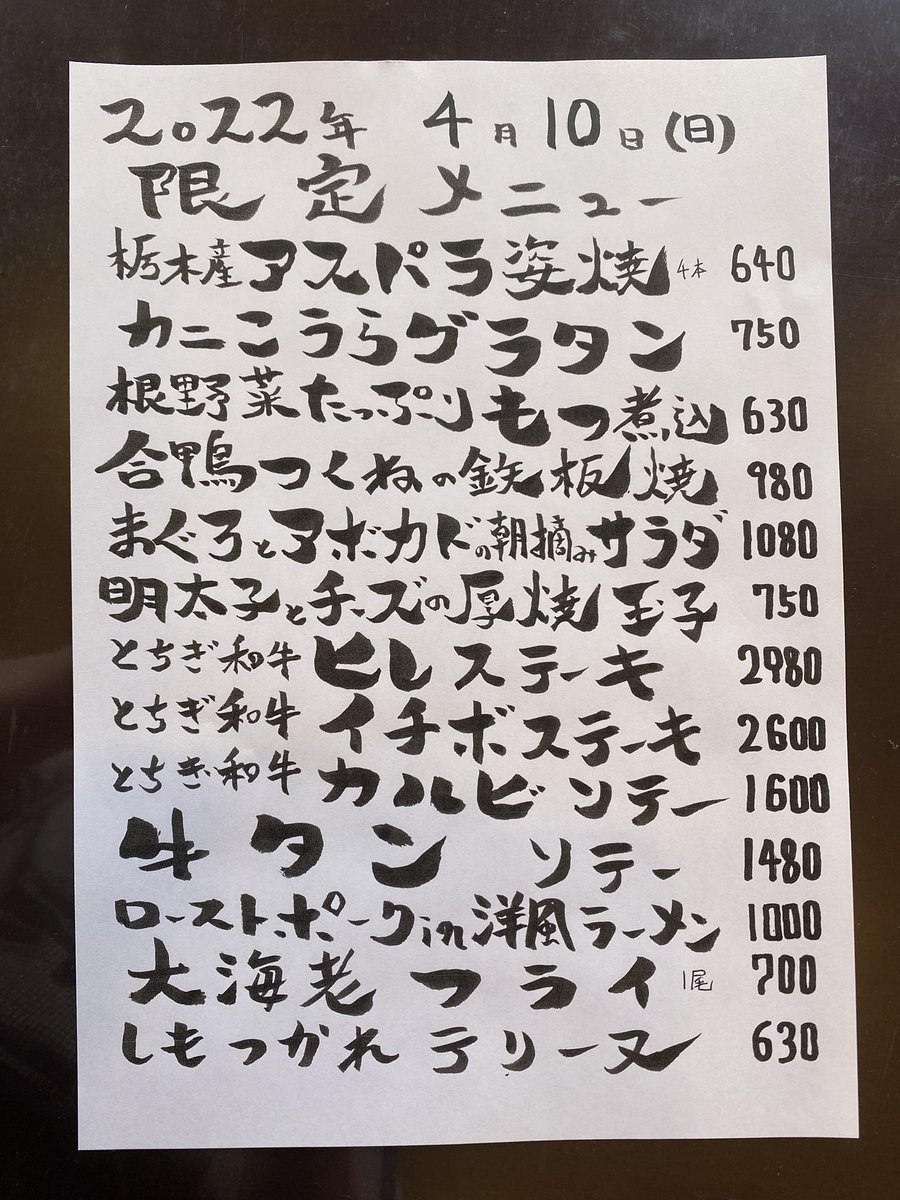 2022年 4月10日(日)
限定メニュー
栃木産アスパラ姿焼 4本 640
カニこうらグラタン 750
根野菜たっぷりもつ煮込 630
合鴨つくねの鉄板焼 980
まぐろとアボカドの朝摘みサラダ 1080
明太子とチーズの厚焼玉子 750
とちぎ和牛ヒレステーキ 2980
とちぎ和牛イチボステーキ 2600
とちぎ和牛カルビソテー 1600
牛タンソテー 1480
ローストポークin洋風ラーメン 1000
大海老フライ 1尾 700
しもつかれテリーヌ 630